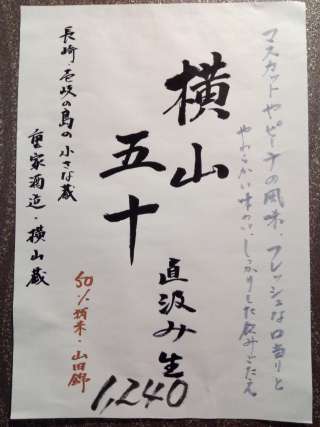 マスカットやピーチの風味、フレッシュな口当りと
やわらかい味わい、しっかりした飲みごたえ
横山
五十
直汲み生
長崎・壱岐の島の小さな蔵
重家酒造・横山蔵
50%精米・山田錦
1,240